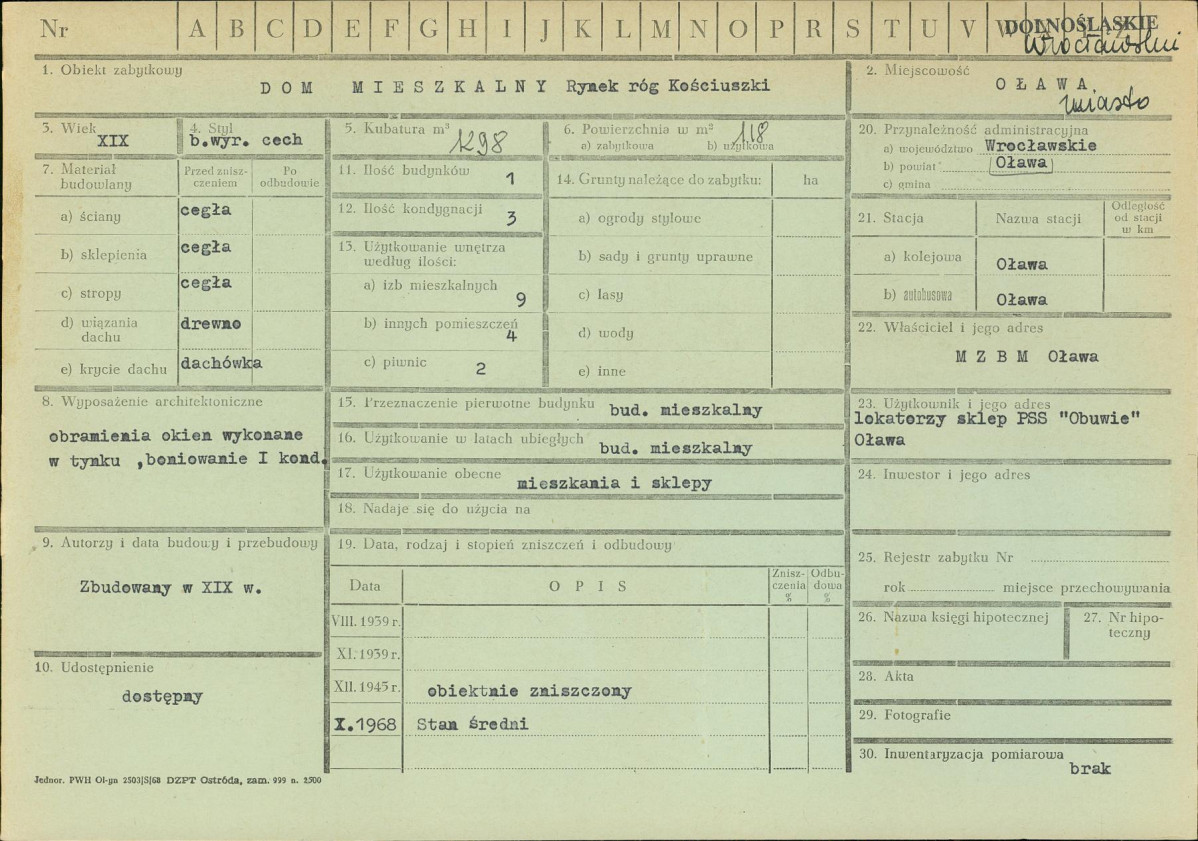 Nr A B C D E F G H I J K L M N O P R S T U V W DOLNOŚLĄSKIE
Wrocławski
1. Obiekt zabytkowy
DOM MIESZKALNY Rynek róg Kościuszki
2. Miejscowość
OŁAWA
miasto
3. Wiek
XIX
4. Styl
b.wyr. cech
5. Kubatura m³
1298
6. Powierzchnia w m² 118
a) zabytkowa b) użytkowa
20. Przynależność administracyjna
a) województwo Wrocławskie
b) powiat Oława
c) gmina
7. Materiał budowlany
Przed zniszczeniem
Po odbudowie
a) ściany cegła
b) sklepienia cegła
c) stropy cegła
d) wiązania dachu drewno
e) krycie dachu dachówka
11. Ilość budynków 1
12. Ilość kondygnacji 3
13. Użytkowanie wnętrza
według ilości:
a) izb mieszkalnych 9
b) innych pomieszczeń 4
c) piwnic 2
14. Grunty należące do zabytku: ha
a) ogrody stylowe
b) sady i grunty uprawne
c) lasy
d) wody
e) inne
21. Stacja Nazwa stacji Odległość od stacji w km
a) kolejowa Oława
b) autobusowa Oława
22. Właściciel i jego adres
M Z B M Oława
8. Wyposażenie architektoniczne
obramienia okien wykonane
w tynku ,boniowanie I kond.
15. Przeznaczenie pierwotne budynku bud. mieszkalny
16. Użytkowanie w latach ubiegłych bud. mieszkalny
17. Użytkowanie obecne mieszkania i sklepy
18. Nadaje się do użycia na
23. Użytkownik i jego adres
lokatorzy sklep PSS "Obuwie"
Oława
24. Inwestor i jego adres
9. Autorzy i data budowy i przebudowy
Zbudowany w XIX w.
10. Udostępnienie
dostępny
19. Data, rodzaj i stopień zniszczeń i odbudowy
Data OPIS Zniszczenia % Odbudowa %
VIII. 1939 r.
XI. 1939 r.
XII. 1945 r. obiektnie zniszczony
X.1968 Stan średni
25. Rejestr zabytku Nr
rok miejsce przechowywania
26. Nazwa księgi hipotecznej
27. Nr hipoteczny
28. Akta
29. Fotografie
30. Inwentaryzacja pomiarowa
brak
Jednor. PWH Ol-yn 2503/S/68 DZPT Ostróda, zam. 999 n. 2500